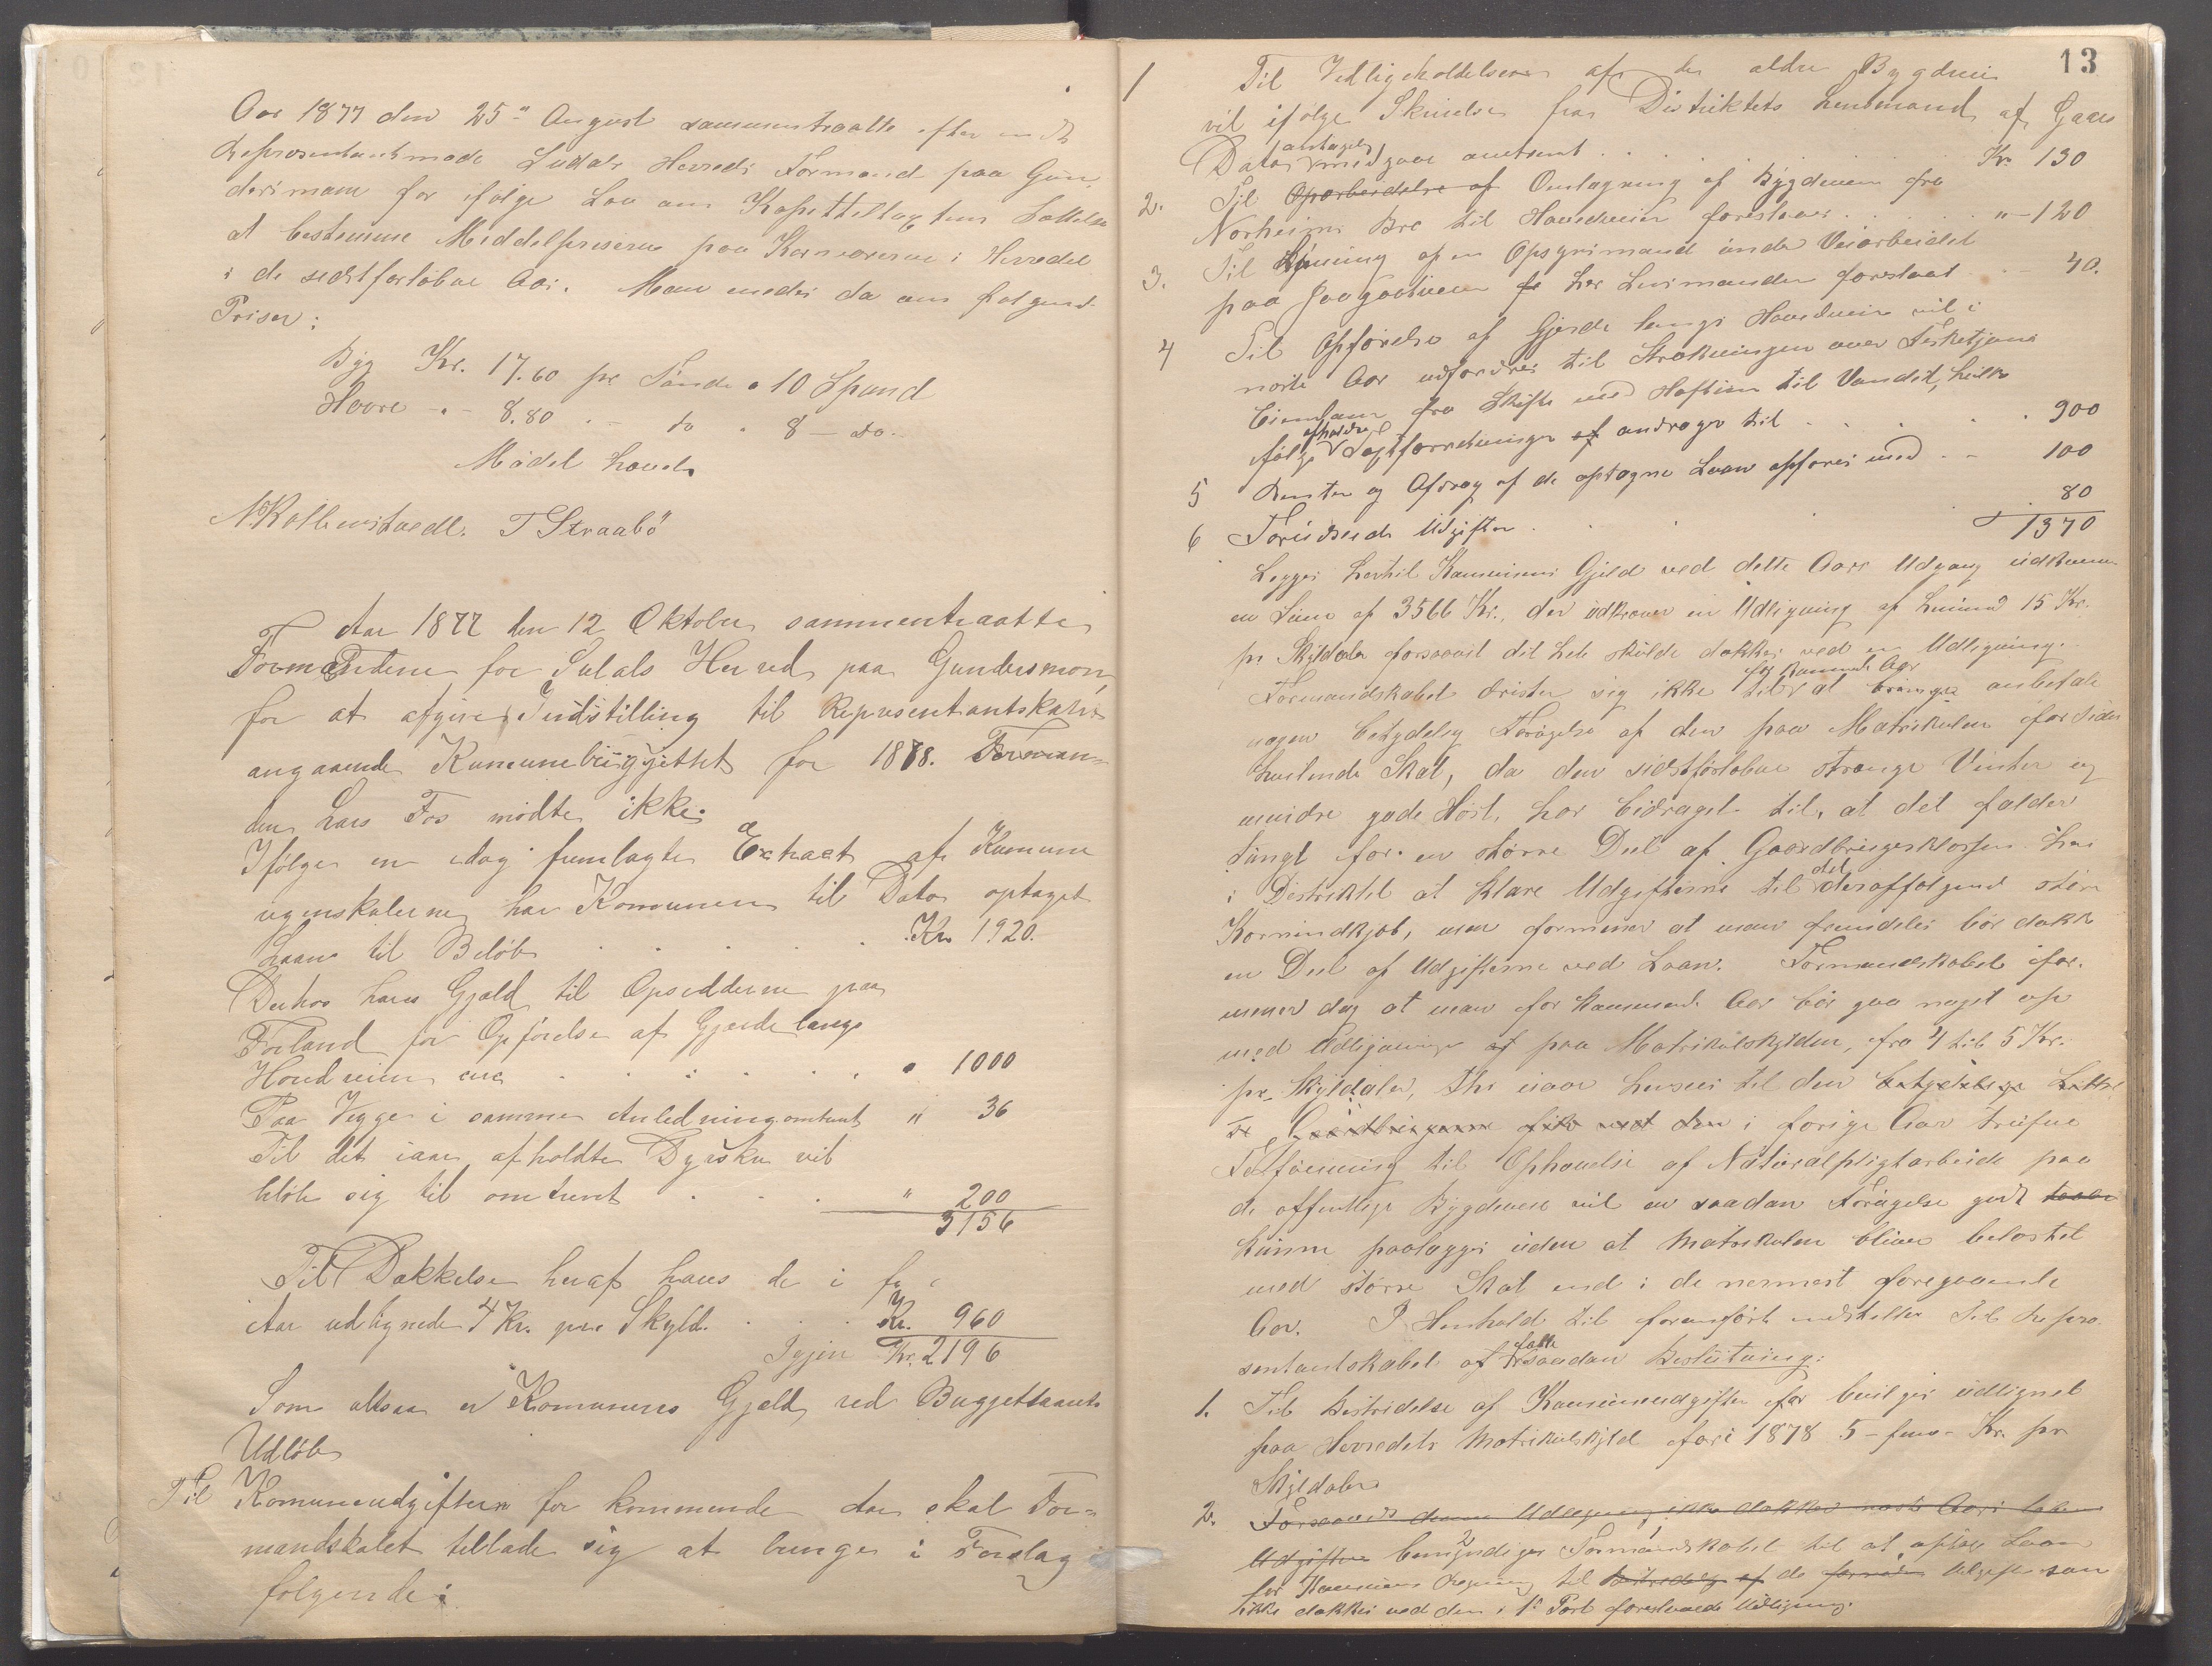 Aar 1877 den 25de August sammentraatte efter endt
Repræsentantmøde Suldals Herreds Formænd paa Gun-
dersmoen for ifølge Lov om Kapitelstaxters Sættelse
at bestemme Middelpriserne paa Kornvarerne i Herredet
i de sidstforløbne Aar. Man enedes da om følgende
Priser:
Byg Kr. 17.60 pr Tønde a 10 Spand
Havre - " - 8.80 " - do " 8 - do.
Mødet hævet.
N. Kolbenstvedt. T Straabö
Aar 1877 den 12 Oktober sammentraatte
Formændene for Suldals Herred paa Gundersmoen
for at afgive Indstilling til Representantskabet
angaaende Kumunebudgjettet for 1878. Forman-
den Lars Fos mødte ikke.
Ifølge en idag fremlagte Extract af Kumune
regnskaberne har Komunen til Dato optaget
Laan til Beløb . . . . . Kr 1920.
Derhos haves Gjæld til Opsidderne paa
Forland for Opførelse af Gjærde langs
Hovedveien ca . . . . . " 1000
Paa Vegge i samme Anledning omtrent " 36
Til det iaar afholdte Dyrsku vil
beløbe sig til omtrent . . . " 200
3156
Til Dækkelse heraf haves de i
Aar udlignede 4 Kr. pr Skyld. . . . Kr. 960
Igjen Kr. 2196
Som altsaa er Komunens Gjæld ved Buggettaarets
Udløb
Til Komuneudgifterne for kommende Aar skal For-
mandskabet tillade sig at bringe i Forslag
følgende:
13
1 Til Vedligeholdelsen af de ældre Bygdeveie
vil ifølge Skrivelse fra Distriktets Lensmand af Gaars
Dato antagelig medgaae omtrent . . . . Kr. 130
2. Til Oparbeidelse af Omlægning af Bygdeveien fra
Norheims Bro til Hovedveien foreslaaes . . . " - 120
3. Til Lønning af en Opsynsmand under Veiarbeidet
paa har Lensmanden foreslaaet . . - 40.
4 Til Opførelse af Gjerde langs Hovedveien vil i
næste Aar udfordres til Strækningen over Fisketjøns
fra Skifte med Haftun til Vandet, hvilke
følge afholdte Taxtforretninger af andrager til . . . . 900
5 Renter og Afdrag af de optagne Laan opføres med . - 100
6 Foruseede Udgifter . . . . 80
1370
Lægges hertil Kommunens Gjeld ved dette Aars Udgang udkommer
en Sum af 3566 Kr., der udkræver en Udligning af henimod 15 Kr.
pr Skylddaler forsaavidt det hele skulde dækkes ved en Udligning.
Formandskabet drister sig ikke til for kommende Aar at bringe anbefale
nogen betydelig Forøgelse af den paa Matrikulen forsiden
hvilende Skat, da den sidstforløbne strænge Vinter og
mindre gode Høst, har bidraget til, at det falder
tungt for en større Deel af Gaardbrugerklassen her
i Distriktet at klare Udgifterne til det deraffølgend større
Kornindkjøb, men formener at man fremdeles bør dække
en Deel af Udgifterne ved Laan. Formandskabet for-
mener dog at man for kommende Aar bør gaa noget op
med Udligninge af paa Matrikulskylden, fra 4 til 5 Kr.
pr. Skylddaler, Thi naar hensees til den betydelige Lettel
se Gaardbrugerne fik ved den i forige Aar trufne
Følføining til Ophævelse af Naturalpligtarbeide paa
de offentlige Bygdeveie vil en saadan Forøgelse godt taale
kunne paalægges uden at Matrikulen bliver belastet
med større Skat end i de nermest foregaaende
Aar. I Henhold til foranførte indstilles til Repræ
sentantskabet at fatte saadan Beslutning:
1. Til Bestridelse af Kommuneudgifter for bevilges udlignet
paa Herredets Matrikulskyld for 1878 5 - fem - Kr. pr
Skylddaler
2. Forsaavidt denne Udligning ikke dækker næste Aars
Udgifter bemyndiges Formandskabet til at optage Laan
for Kommunens Regning til Bestridelse af de Udgifter som
ikke dækkes ved den i 1ste Post foreslaaede Udligning.